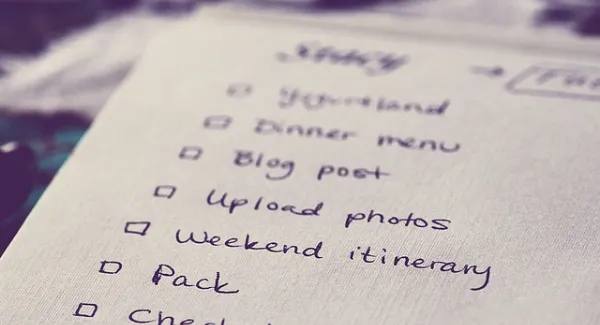 →
☐ Yogurtland
☐ Dinner menu
☐ Blog post
☐ Upload photos
☐ Weekend itinerary
☐ Pack
☐